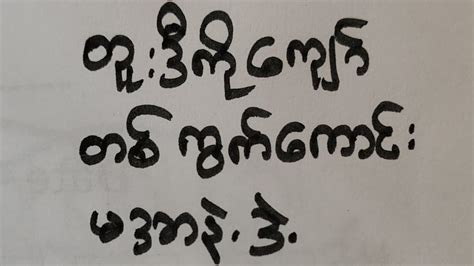 တူးဒီကိုကျော်
တစ်ကွက်ကောင်း
မဒအနဲ့ဒဲ့